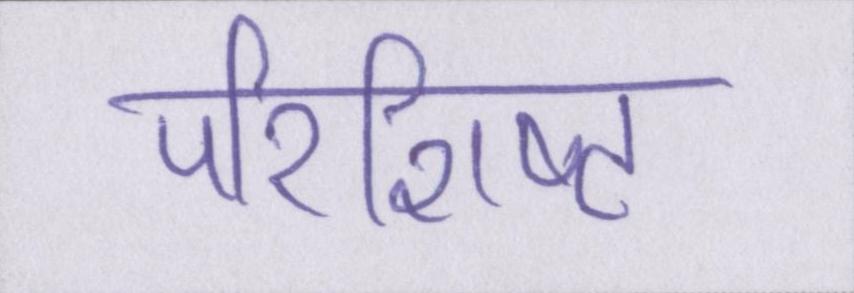 परिशिष्ट